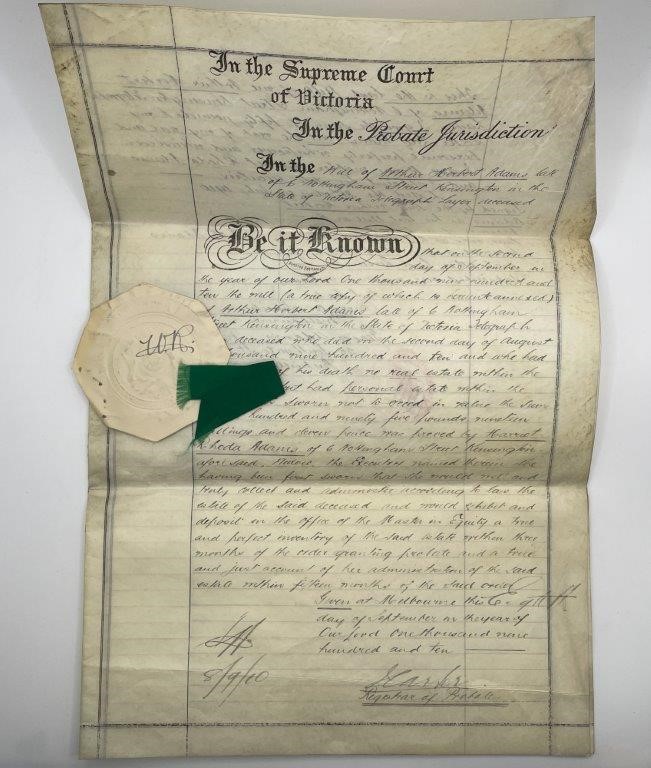 In the Supreme Court
of Victoria
In the Probate Jurisdiction
In the Will of Arthur Herbert Adams late
of 6 Nottingham Street Kensington in the
State of Victoria Telegraph deceased
Be it Known that on the second
day of September in
the year of our Lord One thousand nine hundred and
ten the will (a true copy of which is hereunto annexed)
Arthur Herbert Adams late of 6 Nottingham
Street Kensington in the State of Victoria Telegraph
deceased who died on the second day of August
thousand nine hundred and ten and who had
of his death no real estate within the
but had personal estate within the
sworn not to exceed in value the sum
hundred and ninety five pounds nineteen
shillings and eleven pence was proved by Harriet
Rhoda Adams of 6 Nottingham Street Kensington
aforesaid Widow the Executrix named therein she
having been first sworn that she would well and
truly collect and administer according to law the
estate of the said deceased and would exhibit and
deposit in the office of the Master in Equity a true
and perfect inventory of the said estate within three
months of the order granting probate and a true
and just account of her administration of the said
estate within fifteen months of the said order
Given at Melbourne this
day of September in the year of
Our Lord One thousand nine
hundred and ten
8/9/10
Registrar of Probates